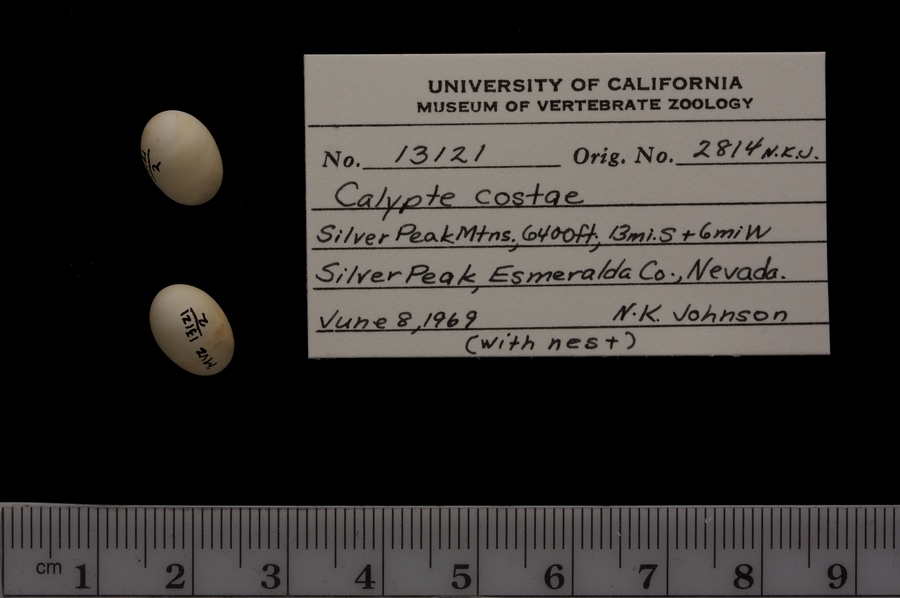 UNIVERSITY OF CALIFORNIA
MUSEUM OF VERTEBRATE ZOOLOGY
No. 13121 Orig. No. 2814 N.K.J.
Calypte costae
Silver Peak Mtns., 6400ft, 13mi. S + 6mi W
Silver Peak, Esmeralda Co., Nevada.
June 8, 1969 N.K. Johnson
(with nest)
MVZ
13121
2
cm 1 2 3 4 5 6 7 8 9